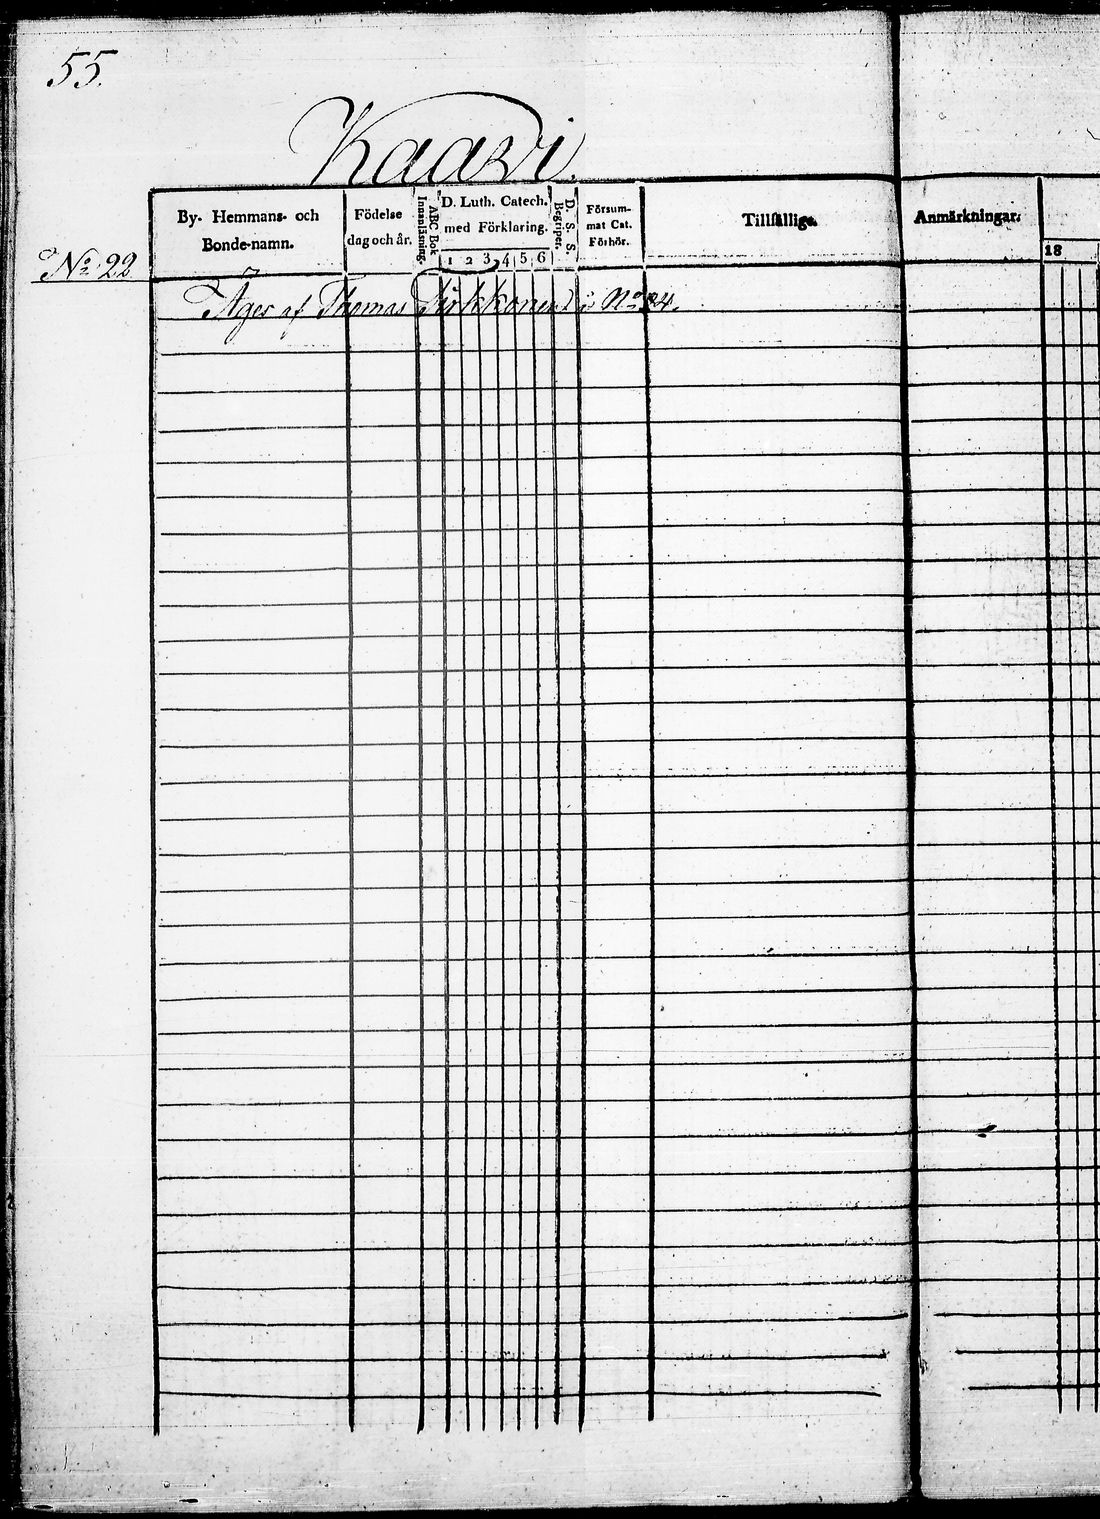 55.
Kaavi.
By- Hemmans- och Bonde-namn.
Födelse dag och år.
Innanläsning.
ABC Bok
D. Luth. Catech. med Förklaring.
1 2 3 4 5 6
D. S. S. Begriper.
Försum-
mat Cat.
Förhör.
Tillfällige.
Anmärkningar.
18
No 22
Äges af Thomas i No 24.